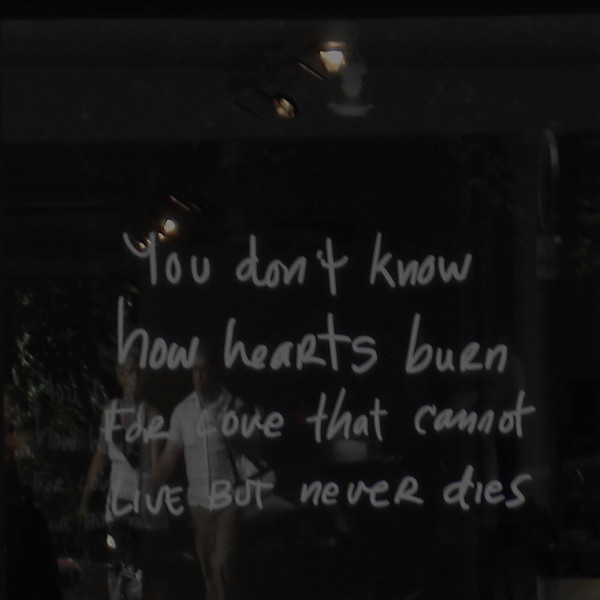 You don't know
how heaRts buRn
FoR Love that cannot
LIVE BUT neveR dies